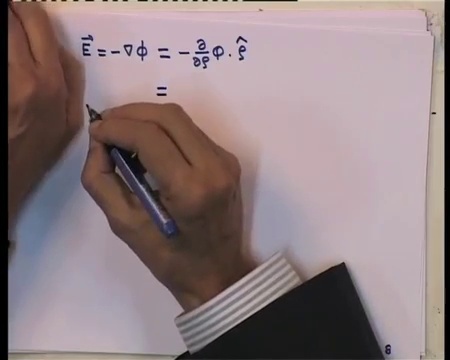 E⃗ = -∇φ = -∂/∂ρ φ · ρ̂
=
8